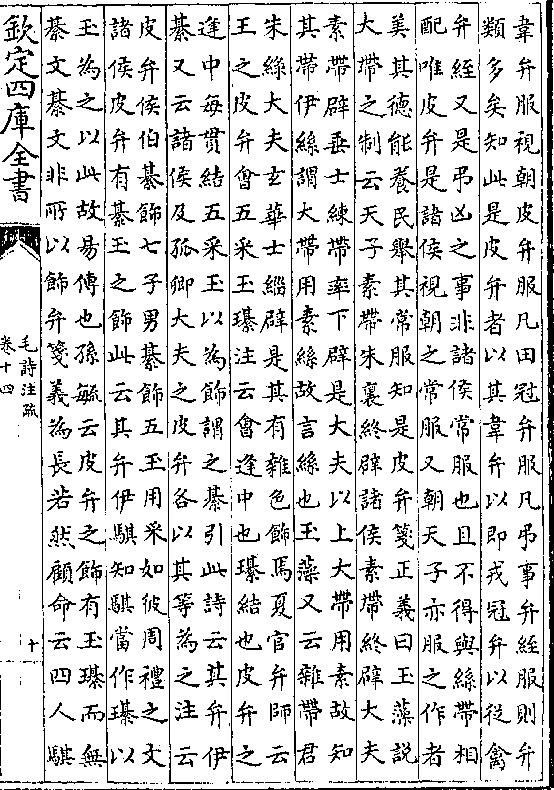 韋弁服視朝皮弁服凡田冠弁服凡弔事弁絰服則弁
類多矣知此是皮弁者以其韋弁以即戎冠弁以從禽
弁絰又是弔凶之事非諸侯常服也且不得與絲帶相
配唯皮弁是諸侯視朝之常服又朝天子亦服之作者
美其德能養民舉其常服知是皮弁箋正義曰玉藻説
大帶之制云天子素帶朱裏終辟諸侯素帶終辟大夫
素帶辟垂士練帶率下辟是大夫以上大帶用素故知
其帶伊絲謂大帶用素絲故言絲也玉藻又云雜帶君
朱綠大夫玄華士緇辟是其有雜色飾焉夏官弁師云
王之皮弁會五采玉璂注云會逢中也璂結也皮弁之
逢中每貫結五采玉以為飾謂之綦引此詩云其弁伊
綦又云諸侯及孤卿大夫之皮弁各以其等為之注云
皮弁侯伯綦飾七子男綦飾五玉用采如彼周禮之文
諸侯皮弁有綦玉之飾此云其弁伊騏知騏當作璂以
玉為之以此故易傳也孫毓云皮弁之飾有玉璂而無
綦文綦文非所以飾弁箋義為長若然顧命云四人騏
欽定四庫全書
毛詩注疏
卷十四
十